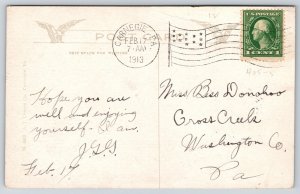 POST CARD
CARNEGIE, PA.
FEB 17
7-AM
1913
U.S. POSTAGE
1 CENT 1
Miss Bess Donahoo
Cross Creek
Washington Co.
Pa
Hope you are
well and enjoying
yourself. I am.
J.G.G
Feb. 17